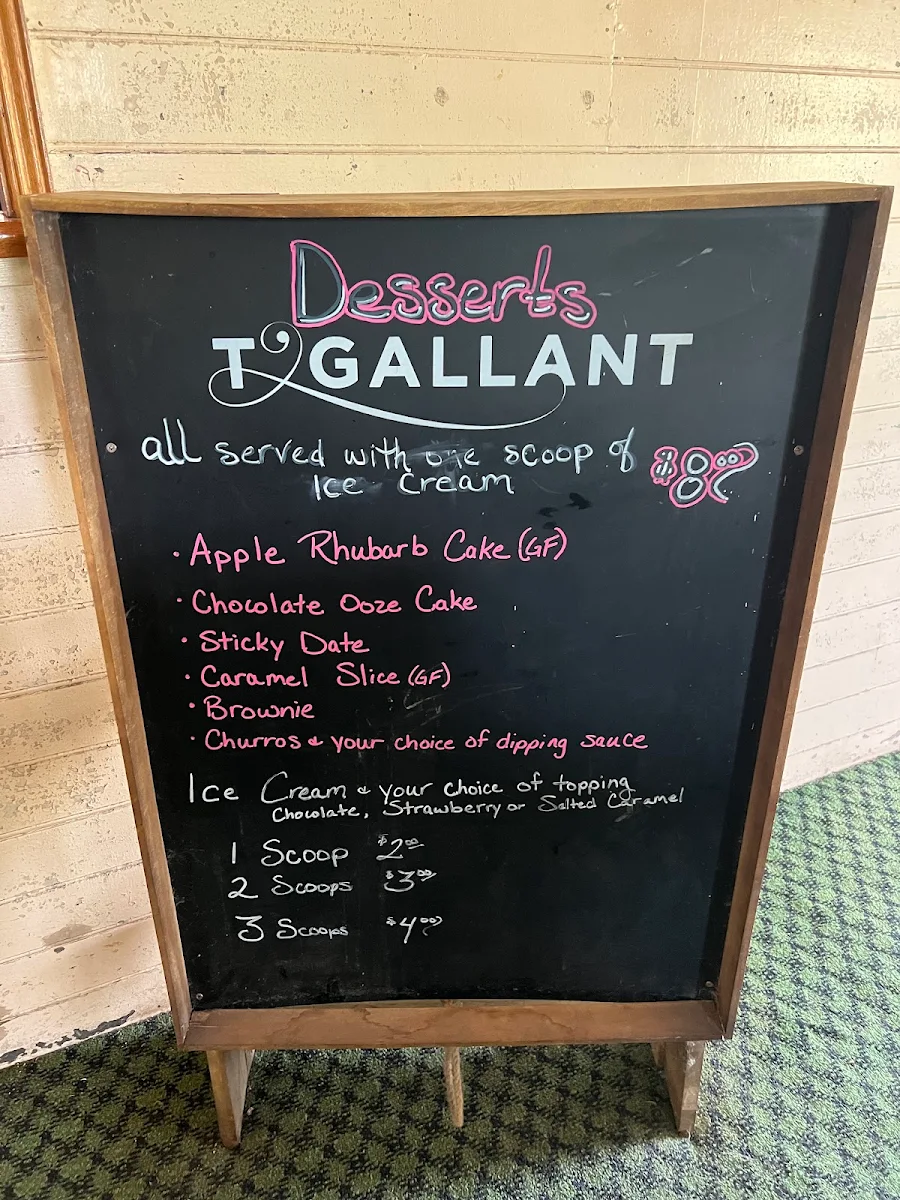 Desserts
T'GALLANT
all served with one scoop of $8.00
Ice Cream
• Apple Rhubarb Cake (GF)
• Chocolate Ooze Cake
• Sticky Date
• Caramel Slice (GF)
• Brownie
• Churros & your choice of dipping sauce
Ice Cream & your choice of topping
Chocolate, Strawberry or Salted Caramel
1 Scoop $2.00
2 Scoops $3.00
3 Scoops $4.00